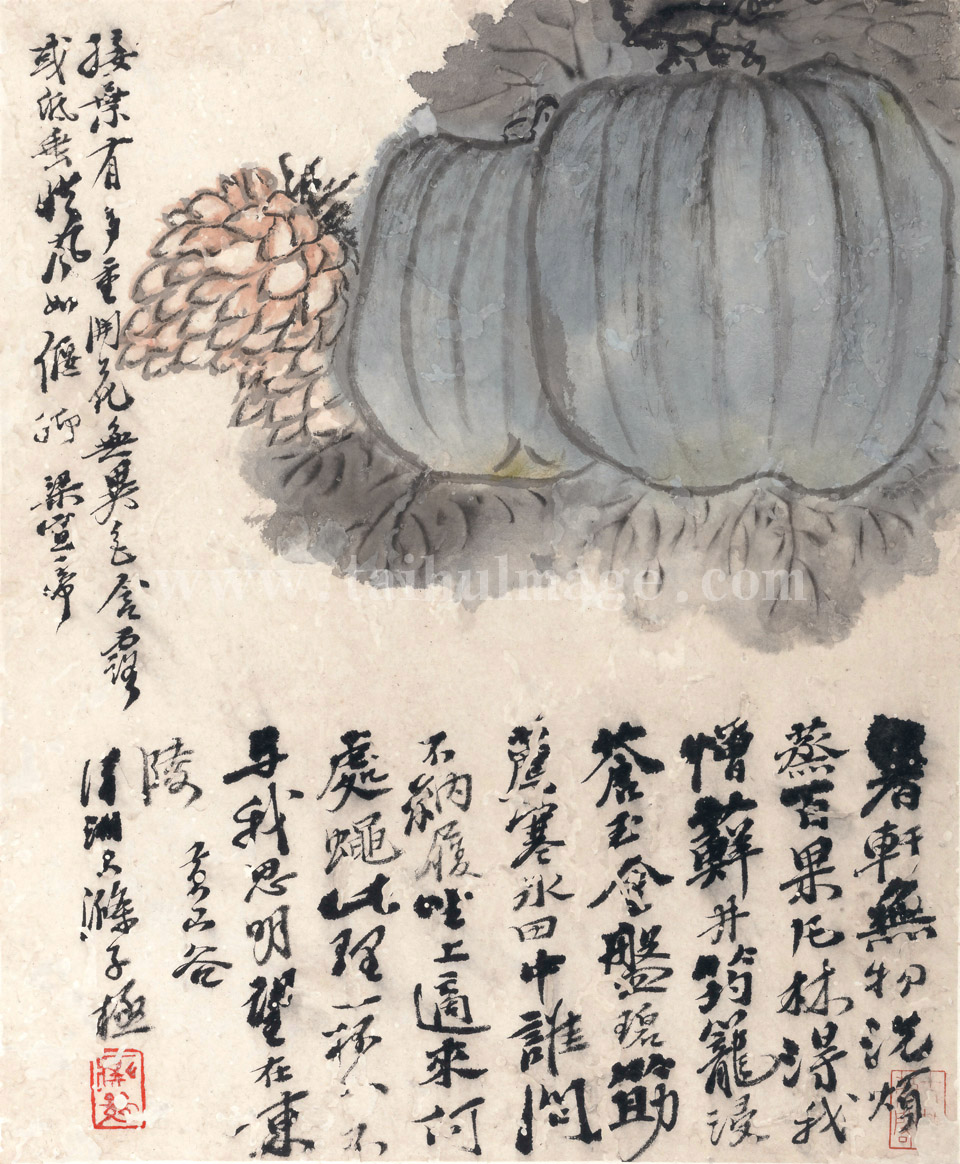 接葉有多重開花無異色含露
或低垂從風如偃仰 梁宣帝
暑軒無物洗煩
蒸百果凡材得我
憎蘚井筠籠浸
蒼玉金盤碧筯
薦寒冰田中誰問
不納履坐上適來何
處蠅此理一杯分
與我思明望在東
陵 黃山谷
清湘大滌子極
www.taihuimage.com